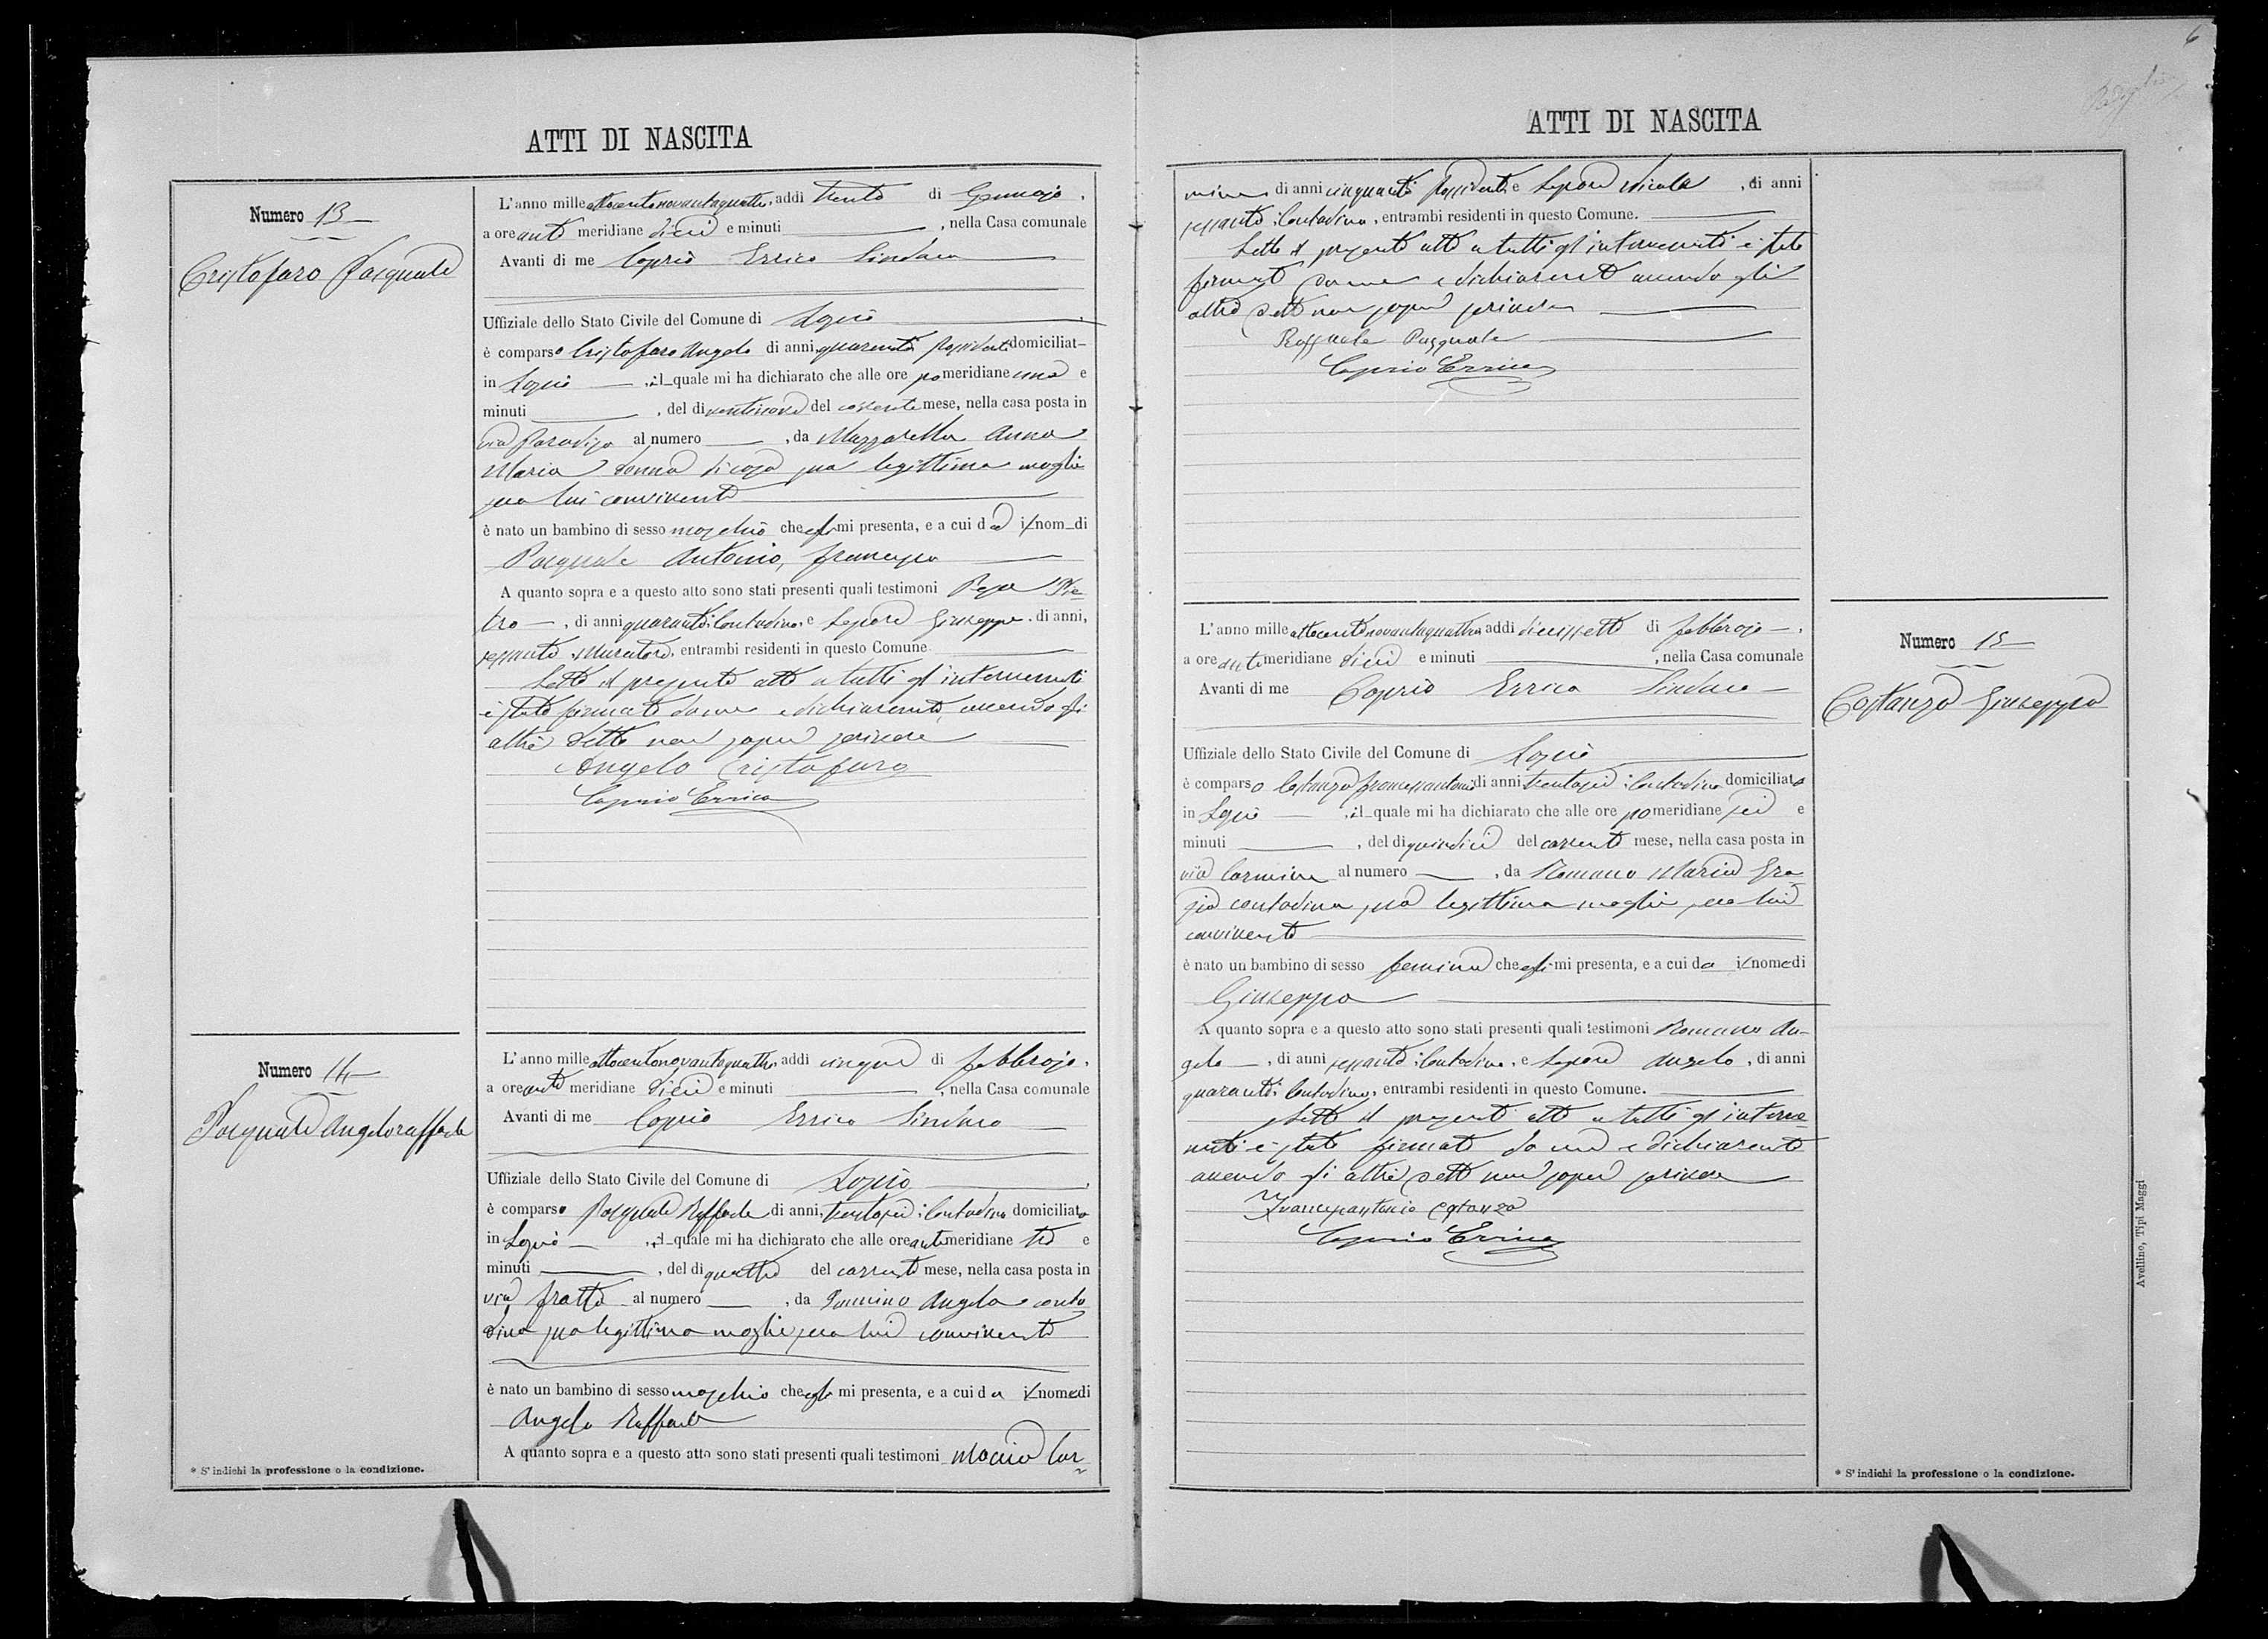 ATTI DI NASCITA
Numero 13
Cristofaro Pasquale
L'anno milleottocentonovantaquattro, addi trenta di Gennajo,
a ore anti meridiane dieci e minuti , nella Casa comunale
Avanti di me Caprio Errico Sindaco
Uffiziale dello Stato Civile del Comune di Lapio
è comparso Cristofaro Angelo di anni quaranta Possidente domiciliat
in Lapio , il quale mi ha dichiarato che alle ore pomeridiane una e
minuti , del di ventinove del corrente mese, nella casa posta in
via Paradiso al numero , da Mazzarella Anna
Maria donna di casa sua legittima moglie
seco lui convivente
è nato un bambino di sesso maschio che egli mi presenta, e a cui dà i nom di
Pasquale Antonio, Francesco
A quanto sopra e a questo atto sono stati presenti quali testimoni Pepe Pie
tro , di anni quaranta, Contadino, e Lepore Giuseppe, di anni,
sessanta, Muratore, entrambi residenti in questo Comune
Letto il presente atto a tutti gl'intervenuti
è stato firmato da me e dichiarante, avendo gli
altri detto non saper scrivere
Angelo Cristofaro
Caprio Errico
Numero 14
Pasquale Angeloraffaele
L'anno milleottocentonovantaquattro, addi cinque di febbrajo,
a ore anti meridiane dieci e minuti , nella Casa comunale
Avanti di me Caprio Errico Sindaco
Uffiziale dello Stato Civile del Comune di Lapio
è comparso Pasquale Raffaele di anni, trentasei, Contadino domiciliato
in Lapio , il quale mi ha dichiarato che alle ore antimeridiane tre e
minuti , del di quattro del corrente mese, nella casa posta in
via fratte al numero , da Angela conta
dina sua legittima moglie seco lui convivente
è nato un bambino di sesso maschio che egli mi presenta, e a cui da il nome di
Angelo Raffaele
A quanto sopra e a questo atto sono stati presenti quali testimoni Car
* S'indichi la professione o la condizione.
6
ATTI DI NASCITA
mine di anni cinquanta Possidente e Lepore Nicola , di anni
sessanta, Contadino, entrambi residenti in questo Comune.
Letto il presente atto a tutti gl'intervenuti è stato
firmato da me e dichiarante avendo gli
altri detto non saper scrivere
Raffaele Pasquale
Caprio Errico
L'anno milleottocentonovantaquattro addi diecissette di febbrajo ,
a ore antimeridiane dieci e minuti , nella Casa comunale
Avanti di me Caprio Errico Sindaco
Uffiziale dello Stato Civile del Comune di Lapio
è comparso Costanza Francescantonio di anni trentasei, Contadino domiciliato
in Lapio , il quale mi ha dichiarato che alle ore pomeridiane sei e
minuti , del di quindici del corrente mese, nella casa posta in
via Carmine al numero , da Romano Maria Gra
zia contadina sua legittima moglie seco lui
convivente
è nato un bambino di sesso femina che egli mi presenta, e a cui da il nome di
Giuseppa
A quanto sopra e a questo atto sono stati presenti quali testimoni Romano An
gelo , di anni sessanta, Contadino, e Lepore Angelo, di anni
quaranta, Contadino, entrambi residenti in questo Comune.
Letto il presente atto a tutti gl'interve
nuti è stato firmato da me e dichiarante
avendo gli altri detto non saper scrivere
Francescantonio Costanza
Caprio Errico
Numero 15
Costanza Giuseppa
* S'indichi la professione o la condizione.
Avellino, Tipi Maggi